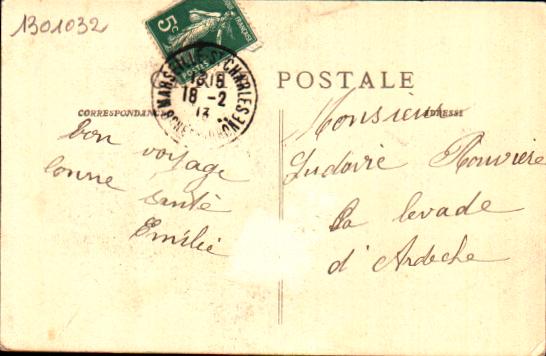 1301032
5c
POSTES
CARTE POSTALE
MARSEILLE-ST CHARLES
18-2
13
CORRESPONDANCE
ADRESSE
bon voyage
bonne santé
Emilie
Monsieur
Ludovic Rouvière
La levade
d'Ardeche